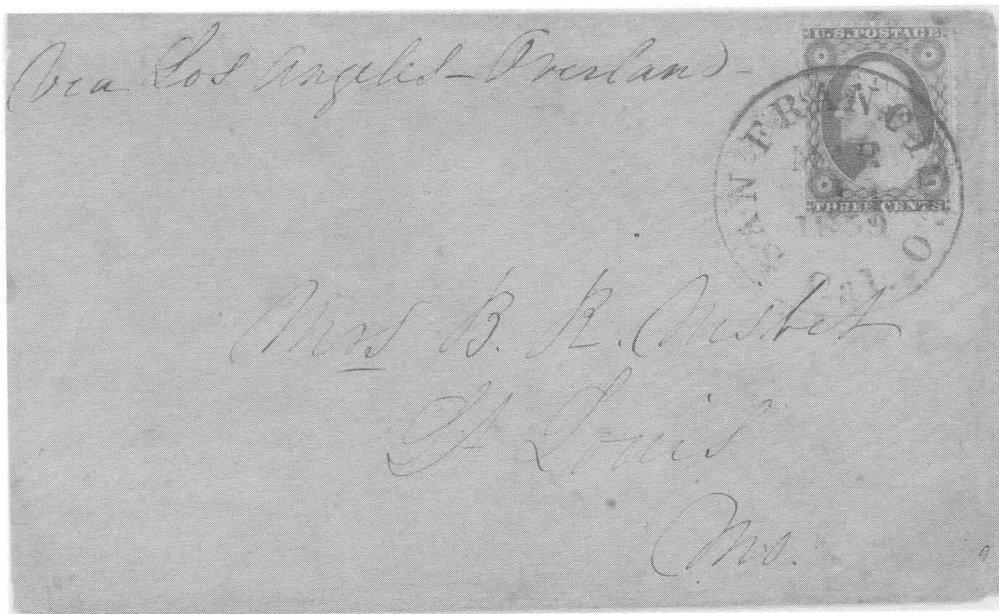 Via Los Angeles - Overland -
U.S. POSTAGE
THREE CENTS
SAN FRANCISCO
1859
Mrs B. R. Nisbet
St Louis
Mo.